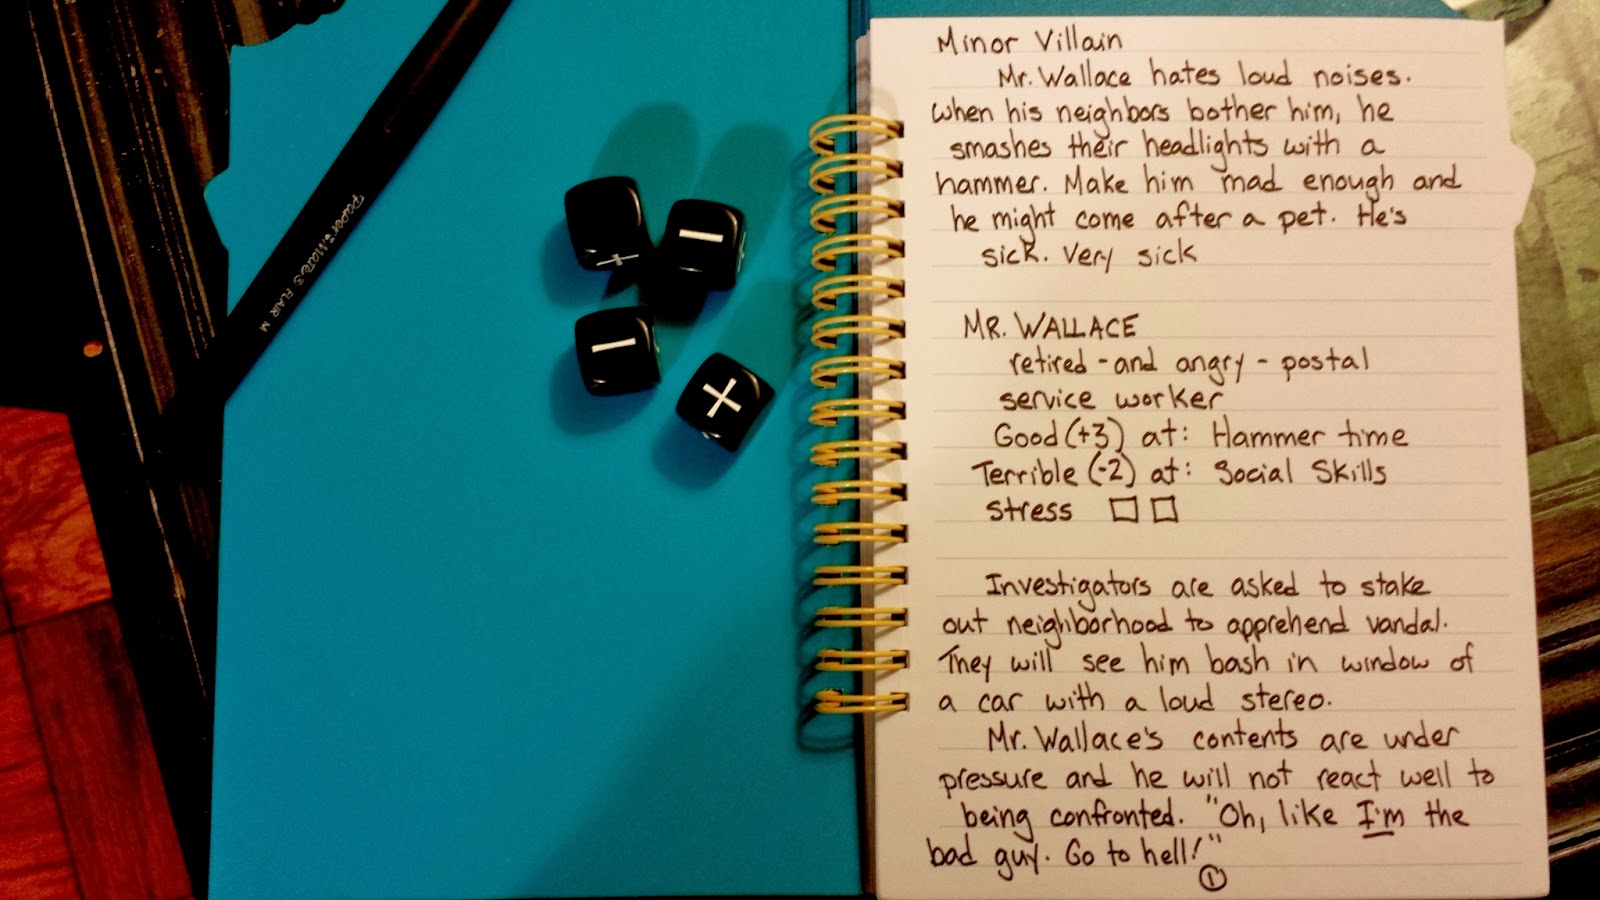 Paper:Mate® FLAIR M
Minor Villain
Mr. Wallace hates loud noises.
When his neighbors bother him, he
smashes their headlights with a
hammer. Make him mad enough and
he might come after a pet. He's
sick. Very sick
MR. WALLACE
retired - and angry - postal
service worker
Good (+3) at: Hammer time
Terrible (-2) at: Social Skills
Stress □ □
Investigators are asked to stake
out neighborhood to apprehend vandal.
They will see him bash in window of
a car with a loud stereo.
Mr. Wallace's contents are under
pressure and he will not react well to
being confronted. "Oh, like I'm the
bad guy. Go to hell!"
①